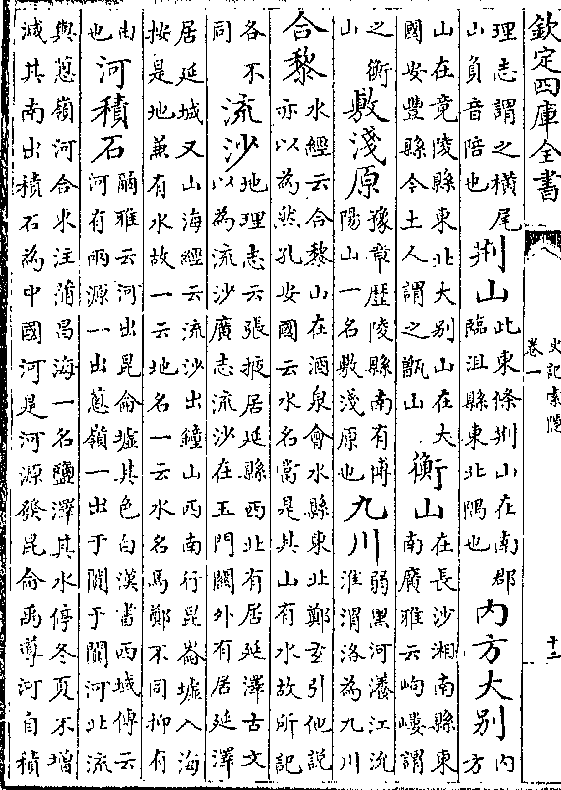 欽定四庫全書
史記索隱
卷一
十二
理志謂之橫尾
山負音陪也
荆山
此東條荆山在南郡
臨沮縣東北隅也
內方大别
內
方
山在竟陵縣東北大别山在大
國安豐縣今土人謂之甑山
衡山
在長沙湘南縣東
南廣雅云岣嶁謂
之衡
山
敷淺原
豫章歴陵縣南有博
陽山一名敷淺原也
九川
弱黑河瀁江沇
淮渭洛為九川
合黎
水經云合黎山在酒泉會水縣東北鄭玄引他說
亦以為然孔安國云水名當是其山有水故所記
各不
同
流沙
地理志云張掖居延縣西北有居延澤古文
以為流沙廣志流沙在玉門關外有居延澤
居延城又山海經云流沙出鐘山西南行昆崙墟入海
按是地兼有水故一云地名一云水名馬鄭不同抑有
由
也
河積石
爾雅云河出昆侖墟其色白漢書西域傳云
河有兩源一出葱嶺一出于闐于闐河北流
與葱嶺河合東注蒲昌海一名鹽澤其水停冬夏不增
減其南出積石為中國河是河源發昆侖禹導河自積